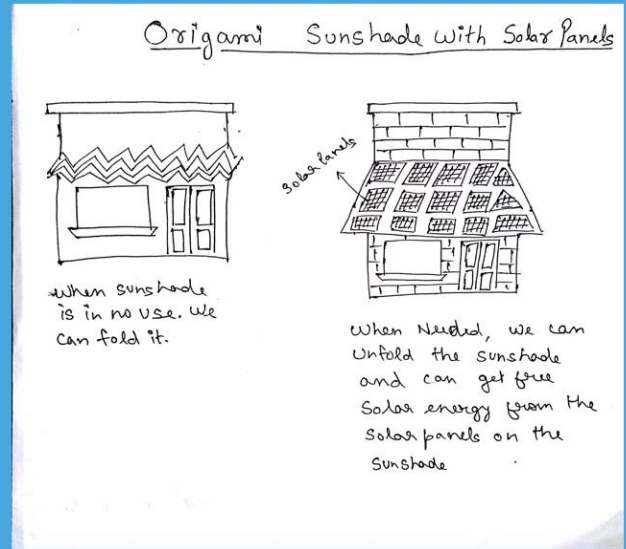 Origami Sunshade with Solar Panels
Solar Panels
when sunshade
is in no use. we
can fold it.
when Needed, we can
unfold the sunshade
and can get free
Solar energy from the
Solar panels on the
Sunshade